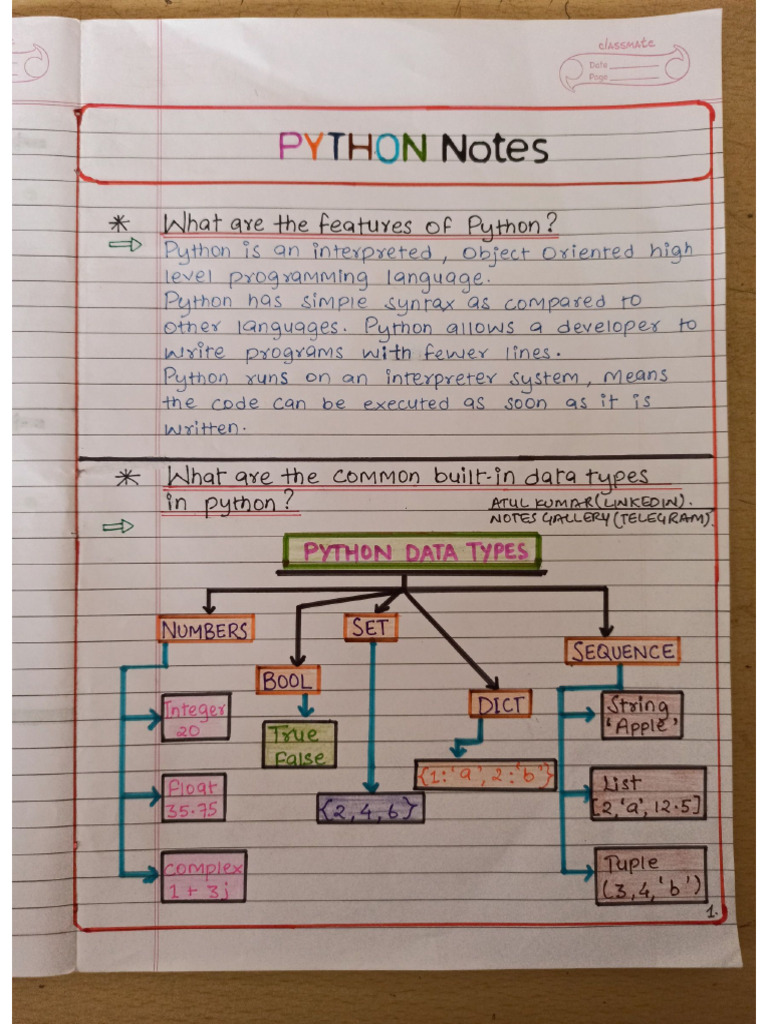 classmate
Date
Page
PYTHON Notes
* What are the features of Python?
⇒ Python is an interpreted, object oriented high
level programming language.
Python has simple syntax as compared to
other languages. Python allows a developer to
write programs with fewer lines.
Python runs on an interpreter system, means
the code can be executed as soon as it is
written.
* What are the common built-in data types
in python?
ATUL KUMAR (LINKEDIN).
NOTES GALLERY (TELEGRAM).
⇒
PYTHON DATA TYPES
NUMBERS
Integer
20
Float
35.75
complex
1 + 3j
BOOL
True
False
SET
{2, 4, 6}
DICT
{1:'a', 2:'b'}
SEQUENCE
String
'Apple'
List
[2,'a', 12.5]
Tuple
(3,4,'b')
1.